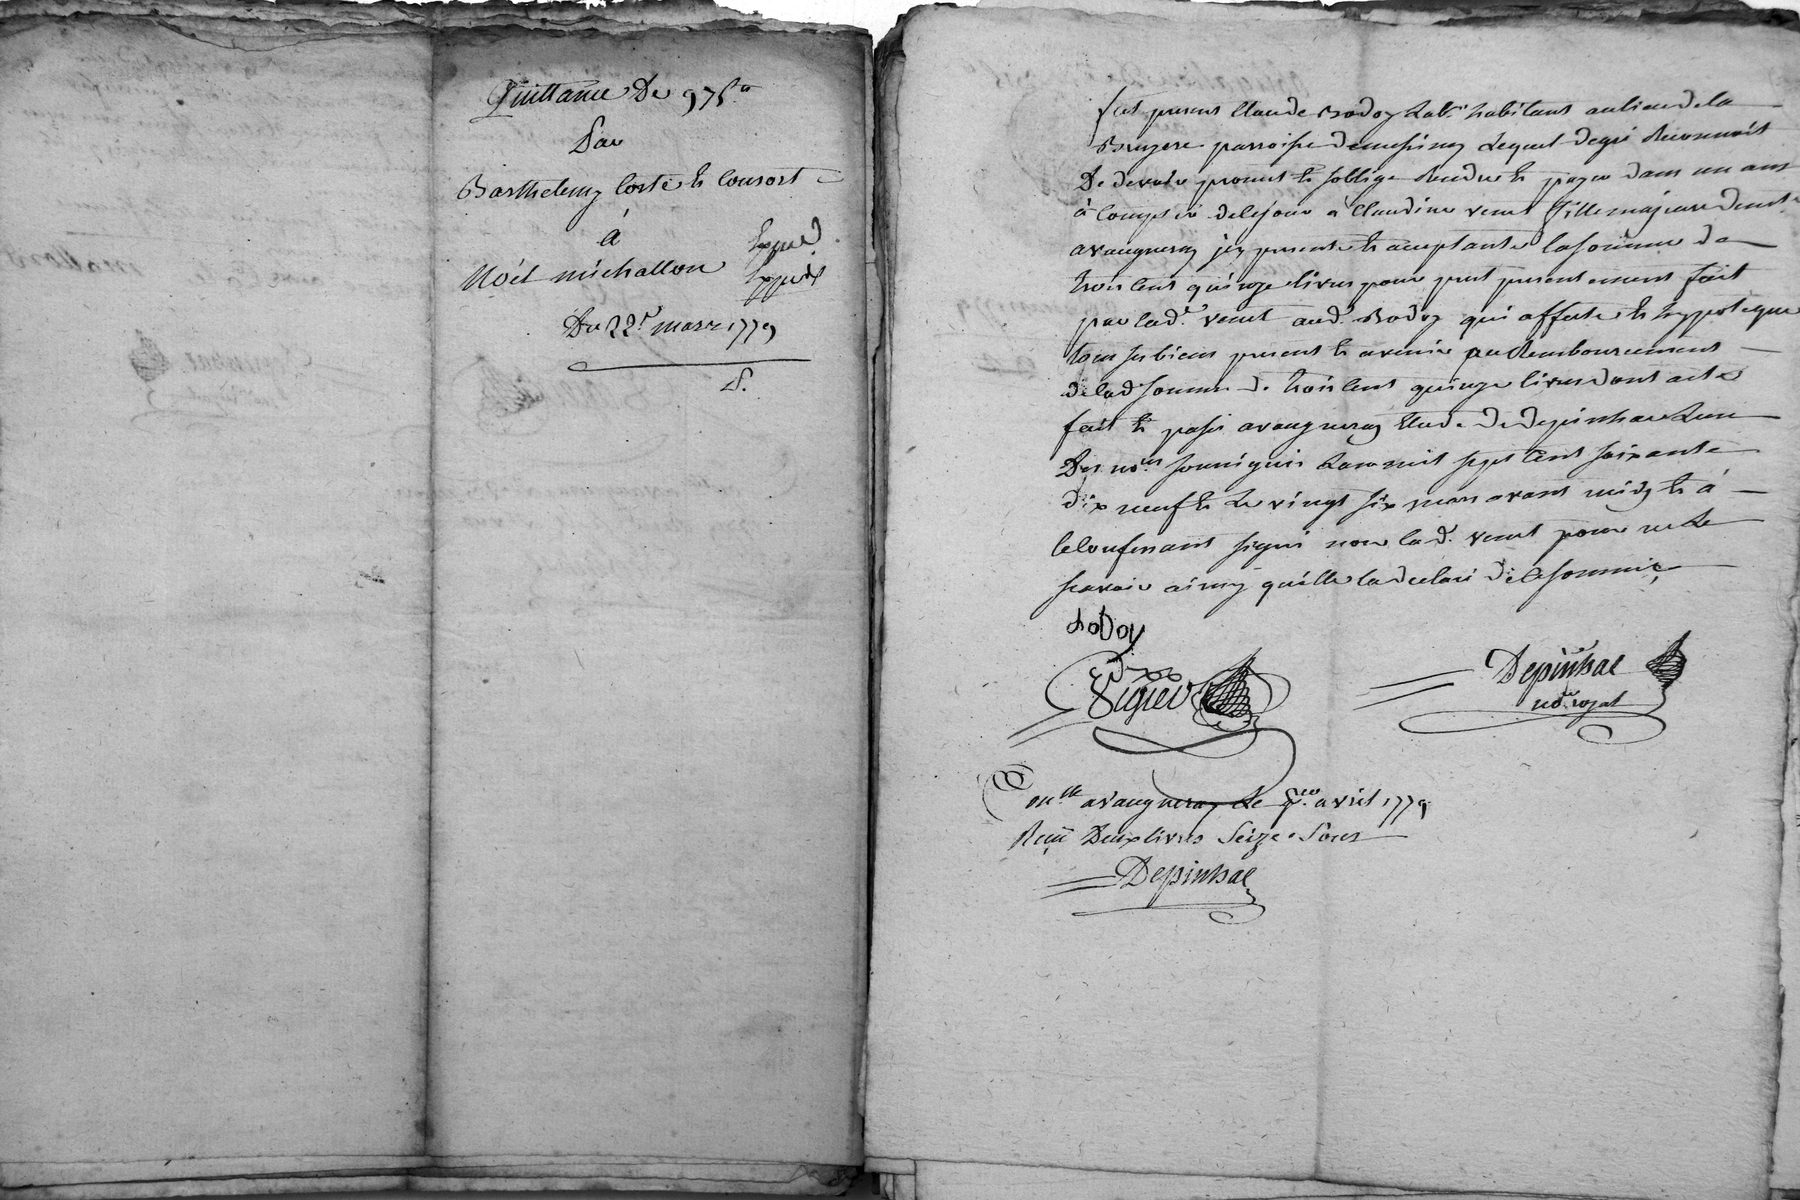 Quittance De 975ᵗᵗ
Par
Barthelemy Coste & Consort
à
Noël michallon
Exped.
Exped.
Du 22ᵉ mars 1779
fut present Claude Bodoy Labʳ habitant au lieu de la
Bruyere parroisse de messimy Lequel de gré Reconnoit
De devoir promet & soblige Rendre & payer dans un ans
à Compter de le jour a Claudine venet fille majeure demte
a vaugneray jcy presente & acceptante la somme de
trois cent quinze livres pour pret presentement fait
par ladᵉ venet aud. Bodoy qui affecte & hyppoteque
tous ses biens present & avenir au Remboursement
de lad somme de trois cent quinze livres dont acte
fait & passé a vaugneray Etude de depinhac Lun
Des noʳᵉˢ soussignés Lan mil sept cent soixante
dix neuf & Le vingt six mars avant midy & à
le Consenant signé non lad. venet pour ne Le
scavoir ainsy quelle la declaré de le sommée
Bodoy
Depinhac
noʳᵉ royal
Onˡˡᵉ a vaugneray Le avril 1779
Reçu Deux livres Seize Sous
Depinhac